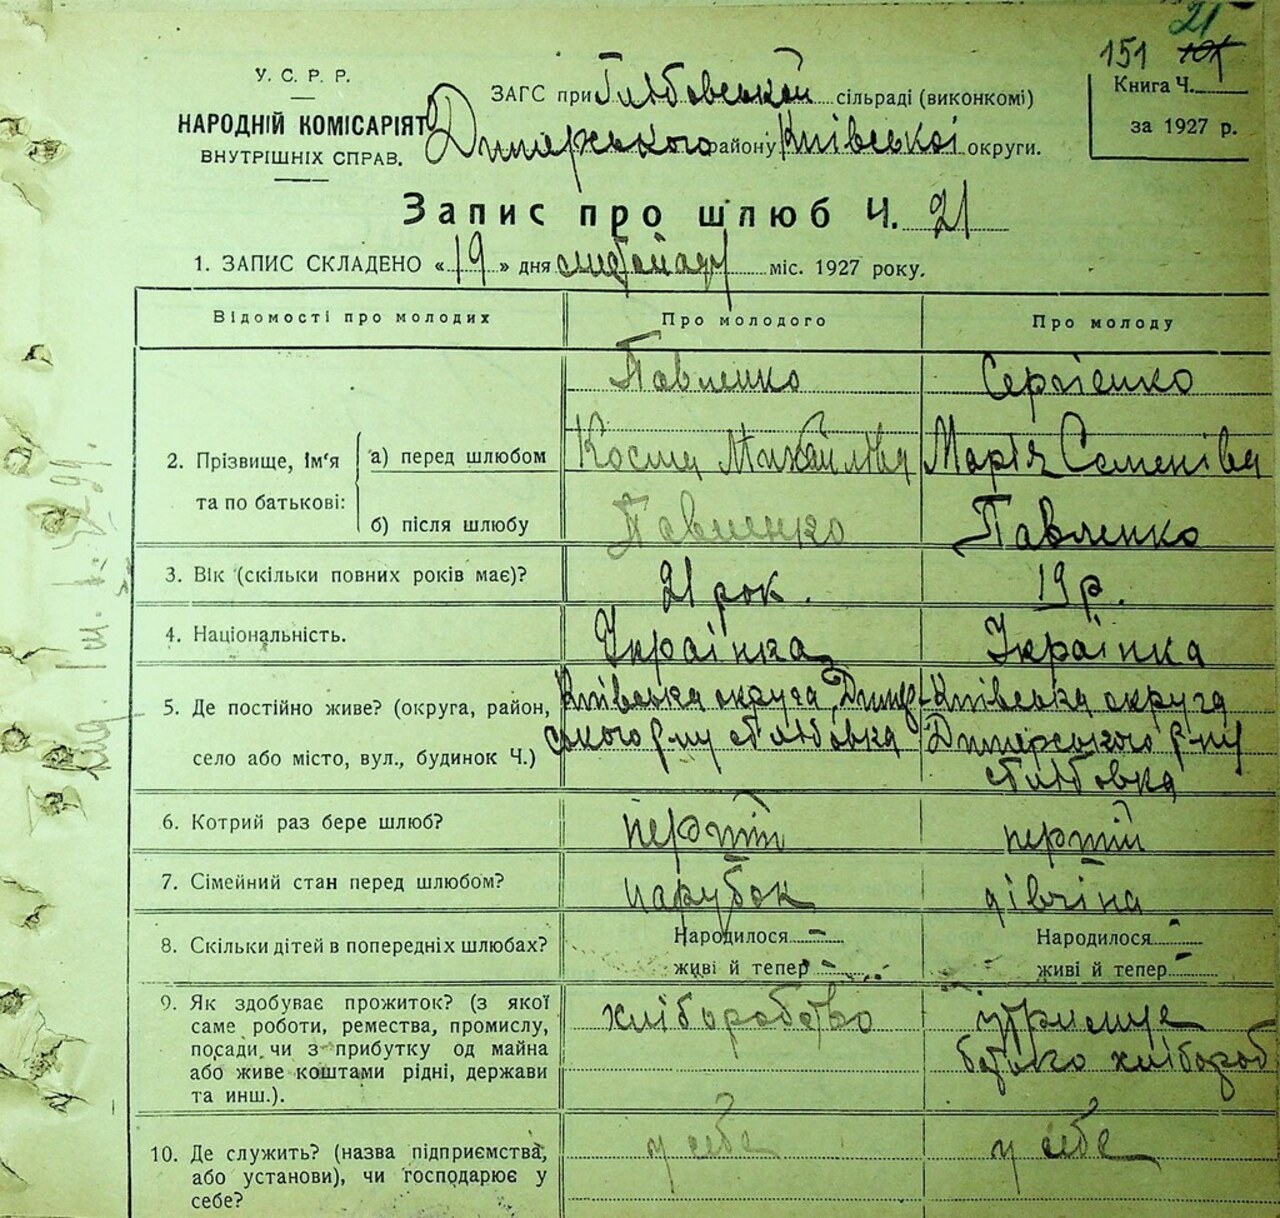 21
151 101
У. С. Р. Р.
НАРОДНІЙ КОМІСАРІЯТ
ВНУТРІШНІХ СПРАВ.
ЗАГС при Глібовській сільраді (виконкомі)
Димерського району Київської округи.
Книга Ч.
за 1927 р.
Запис про шлюб Ч. 21
1. ЗАПИС СКЛАДЕНО «19» дня листопаду міс. 1927 року.
Відомості про молодих Про молодого Про молоду
Павленко Сергієнко
2. Прізвище, ім'я та по батькові: а) перед шлюбом Косма Михайлова Марія Семенівa
б) після шлюбу Павленко Павленко
3. Вік (скільки повних років має)? 21 рок. 19 р.
4. Національність. Українка Українка
5. Де постійно живе? (округа, район, село або місто, вул., будинок Ч.) Київська округа, Димерського р-ну с Глібовка Київська округа Димерського р-ну с Глібовка
6. Котрий раз бере шлюб? перший перший
7. Сімейний стан перед шлюбом? парубок дівчіна
8. Скільки дітей в попередніх шлюбах? Народилося - Народилося -
живі й тепер - живі й тепер -
9. Як здобуває прожиток? (з якої саме роботи, ремества, промислу, посади чи з прибутку од майна або живе коштами рідні, держави та инш.). хліборобство утримує батько хлібороб
10. Де служить? (назва підприємства, або установи), чи господарює у себе? у себе у себе